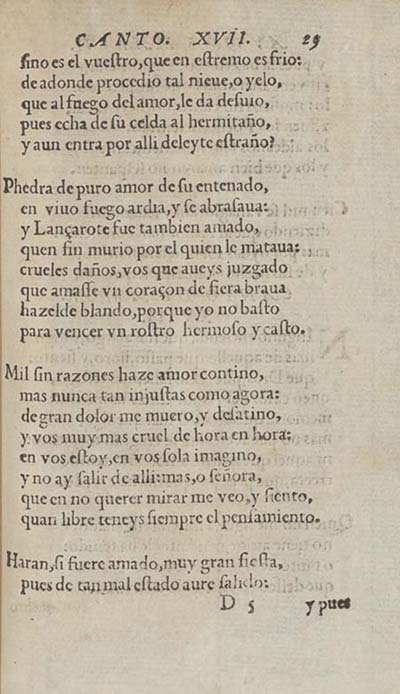 CANTO. XVII. 29
sino es el vuestro, que en estremo es frio:
de adonde procedio tal nieue, o yelo,
que al fuego del amor, le da desuio,
pues echa de su celda al hermitaño,
y aun entra por alli deleyte estraño?
Phedra de puro amor de su entenado,
en viuo fuego ardia, y se abrasaua:
y Lançarote fue tambien amado,
quen sin murio por el quien le mataua:
crueles daños, vos que aueys juzgado
que amasse vn coraçon de fiera braua
hazelde blando, porque yo no basto
para vencer vn rostro hermoso y casto.
Mil sin razones haze amor contino,
mas nunca tan injustas como agora:
de gran dolor me muero, y desatino,
y vos muy mas cruel de hora en hora:
en vos estoy, en vos sola imagino,
y no ay salir de alli: mas, o señora,
que en no querer mirar me veo, y siento,
quan libre teneys siempre el pensamiento.
Haran, si fuere amado, muy gran fiesta,
pues de tan mal estado aure salido:
D 5 y pues